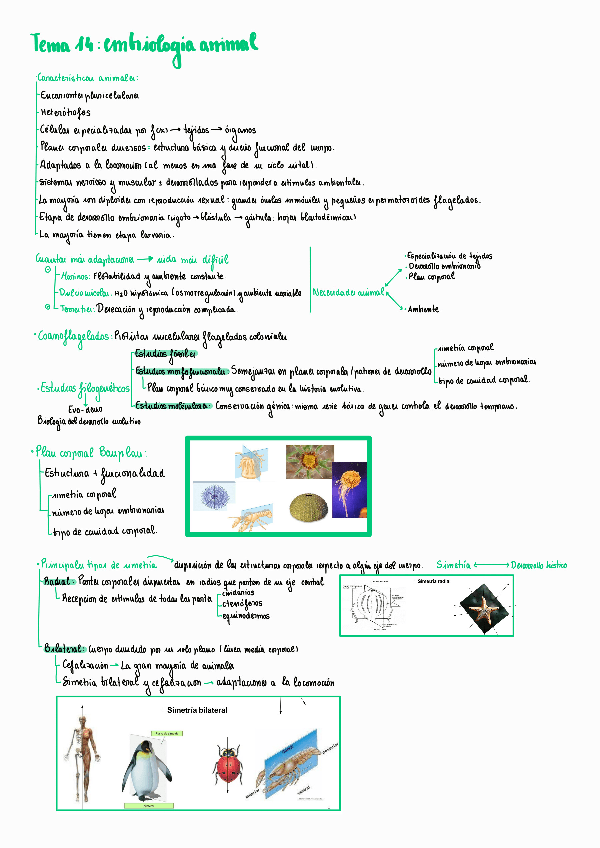 Tema 14: embriología animal
Características animales:
Eucariontes pluricelulares
Heterótrofos
Células especializadas por f(x) → tejidos → órganos
Planes corporales diversos: estructura básica y diseño funcional del cuerpo.
Adaptados a la locomoción (al menos en una fase de su ciclo vital).
Sistemas nervioso y muscular ± desarrollados para responder a estímulos ambientales.
La mayoría son diploides con reproducción sexual: grandes óvulos inmóviles y pequeños espermatozoides flagelados.
Etapa de desarrollo embrionario (cigoto → blástula → gástrula: hojas blastodérmicas)
La mayoría tienen etapa larvaria.
Cuantas más adaptaciones → vida más difícil
Marinos: Flotabilidad y ambiente constante
Dulceacuícolas: H2O hipotónica (osmorregulación) y ambiente variable
Terrestres: Desecación y reproducción complicada
Necesidades animal
· Especialización de tejidos
· Desarrollo embrionario
· Plan corporal
· Ambiente
· Coanoflagelados: Protistas unicelulares flagelados coloniales
· Estudios filogenéticos
Evo-devo
Biología del desarrollo evolutivo
Estudios fósiles
Estudios morfofuncionales: Semejanzas en planes corporales/patrones de desarrollo
simetría corporal
número de hojas embrionarias
tipo de cavidad corporal.
Plan corporal básico muy conservado en la historia evolutiva.
Estudios moleculares: Conservación génica: misma serie básica de genes controla el desarrollo temprano.
· Plan corporal Bauplan:
Estructura + funcionalidad
simetría corporal
número de hojas embrionarias
tipo de cavidad corporal.
· Principales tipos de simetría → disposición de las estructuras corporales respecto a algún eje del cuerpo.
Simetría ↔ Desarrollo histórico
Radial: Partes corporales dispuestas en radios que parten de un eje central
Recepción de estímulos de todas las partes
cnidarios
ctenóforos
equinodermos
Simetría radial
Bilateral: Cuerpo dividido por un solo plano (línea media corporal)
Cefalización → La gran mayoría de animales
Simetría bilateral y cefalización → adaptaciones a la locomoción
Simetría bilateral